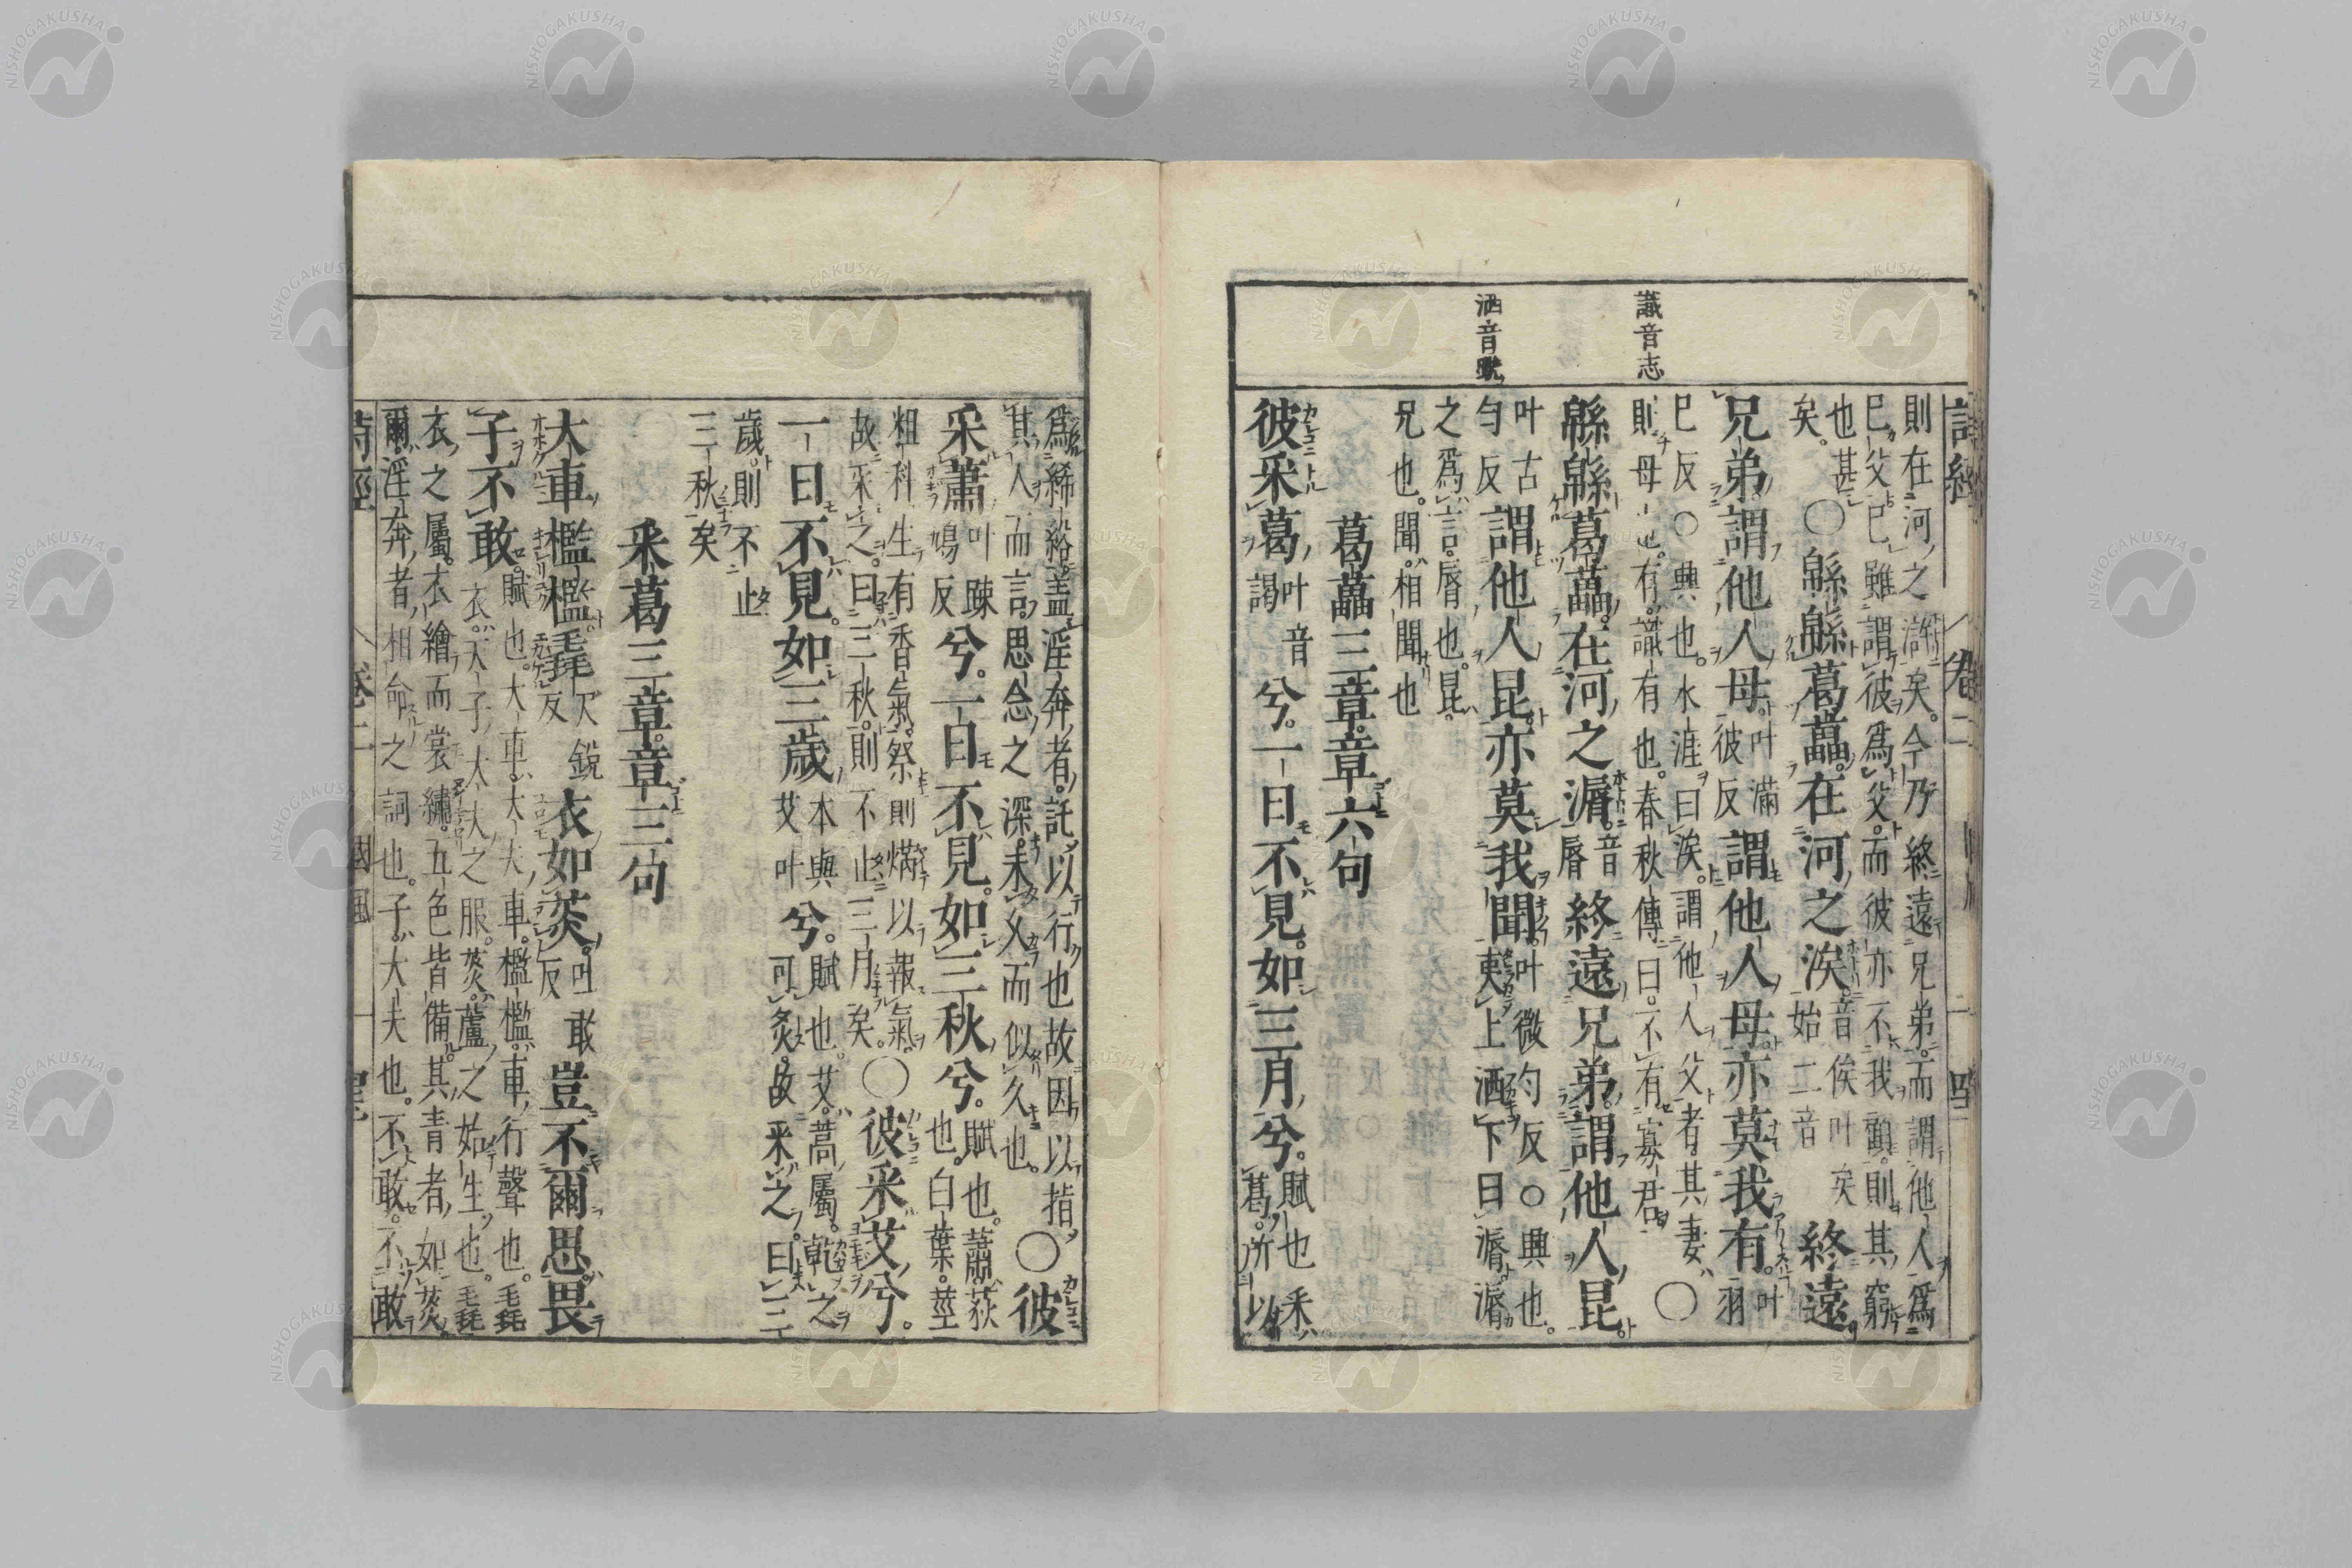 詩經
卷二
四
識音志
洒音璽
則在河之滸矣。今乃終遠兄弟。而謂他人爲
己父。已雖謂彼爲父。而彼亦不我顧。則其窮
也甚
矣。
○緜緜葛藟。在河之涘。音俟叶矣
始二音
終遠
兄弟。謂他人母。叶滿
彼反
謂他人母。亦莫我有。叶
羽
己反○興也。水涯曰涘。謂他人父者。其妻
則母也。有。識有也。春秋傳曰。不有寡君
○
緜緜葛藟。在河之漘。音
脣
終遠兄弟。謂他人昆
叶古
勻反
謂他人昆。亦莫我聞。叶微勻反○興也。
夷上洒下曰漘漘
之爲言脣也。昆。
兄也。聞。相聞也
葛藟三章。章六句
彼采葛叶
謁
音
兮。一日不見。如三月兮。賦也采
葛。所以
爲絺綌。蓋淫奔者。託以行也故因以指
其人。而言。思念之深。未久而似久也。
○彼
采蕭叶踈
鳩反
兮。一日不見。如三秋兮。賦也。蕭荻
也。白葉。莖
粗科生有香氣。祭則焫以報氣。
故采之。曰三秋。則不止三月矣。
○彼采艾兮。
一日不見。如三歲本與
艾叶
兮。賦也。艾。蒿屬。乾之
可灸。故采之。曰三
歲。則不止
三秋矣
采葛三章。章三句
大車檻檻。毳尺銳
反
衣如菼。吐敢
反
豈不爾思。畏
子不敢。賦也。大車。大夫車。檻檻。車行聲也。毳
衣。天子大夫之服。菼。蘆之始生也。毳
衣之屬。衣繪而裳繡。五色皆備。其青者。如菼。
爾。淫奔者。相命之詞也。子。大夫也。不敢。不敢
詩經
卷二
國風